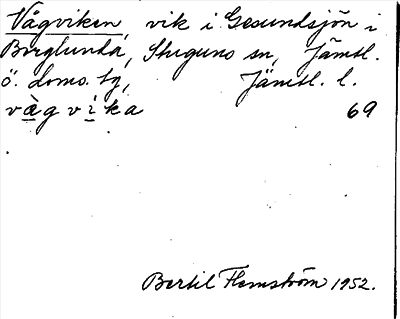 Vågviken, vik i Gesundsjön i
Borglunda, Stuguns sn, Jämtl.
ö. doms. tg, Jämtl. l.
vægvika 69
Bertil Flemström 1952.